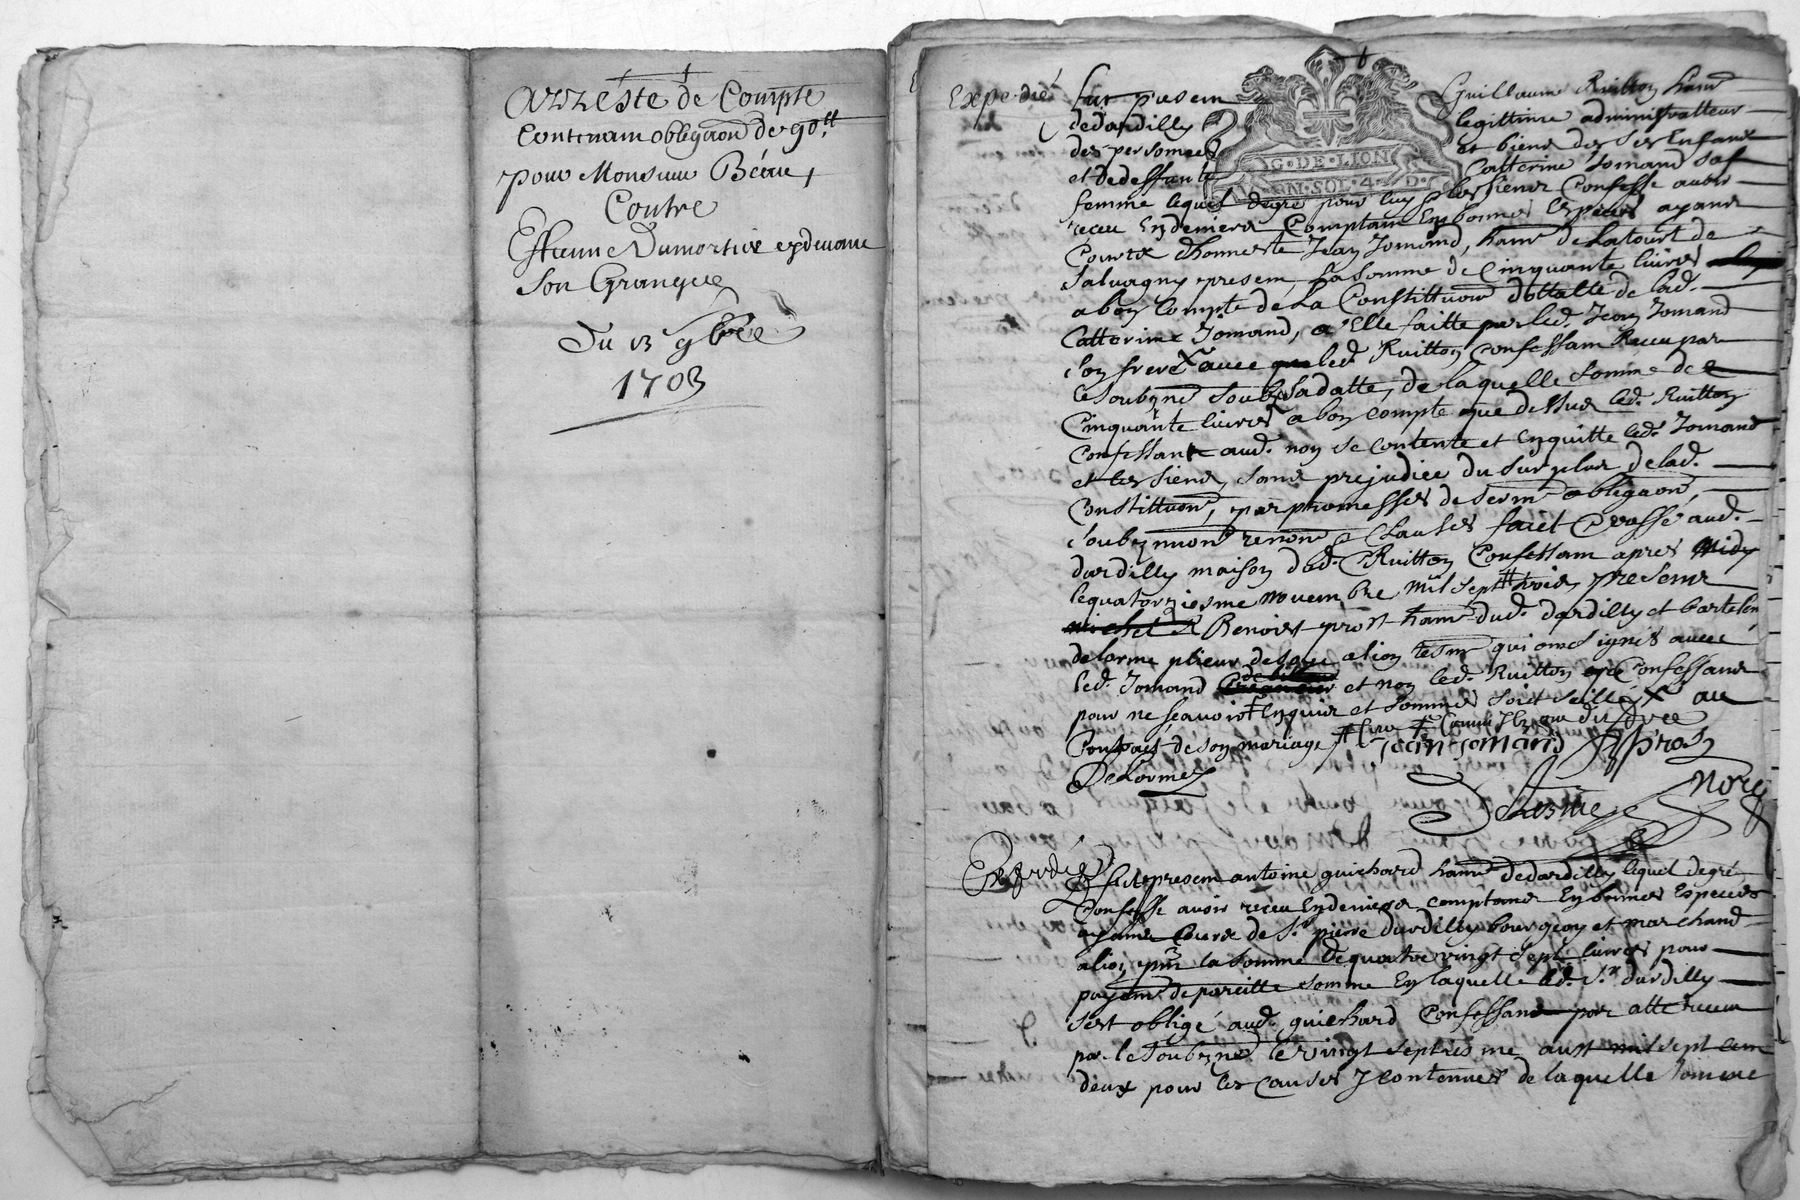 Arreste de Compte
Contenant obligaon de 90tt
pour Monsieur Béraud,
Contre
Estienne Dumortier
son Granger
Du 13 9bre
1703
Expedié
fut presem Guillaume Ruitton ham
dedardilly legittime administratteur
des personnes et biens de ses Enfans
et dedeffunte Catterine Jomand sa
femme lequel degré pour luy & les siens Confesse avoir
receu Endeniers Comptam Enbonnes Especes ayans
Cours dhonneste Jean Jomand, ham de Latourt de
Salvagny presem, La somme de Cinquante livres
a bon Compte de La Constittuon dottalle de lad.
Catterine Jomand, a Elle faitte par led. Jean Jomand
son frere avec led. Ruitton Confessam Receu par
le soubzné soubz sa datte, de laquelle somme de
Cinquante livres a bon compte que dessus led. Ruitton
Confessant aud. nom se contente et Enquitte led. Jomand
et les siens, sans prejudice du surplus de lad.
Constittuon, par promesses de serm obligaon,
soubzmion renon & clauses faict & passé aud.
dardilly maison dud. Ruitton Confessam apres midy
le quatorziesme novembre mil sept trois, presens
Benoist prost ham dud. dardilly et bartelem
delorme plieur de soye a lion tesm qui ont signés avec
led. Jomand et non led. Ruitton Confessant
pour ne sçavoir Enquis et sommés soit seellé au
Contract de son mariage
jean jomand B prost
Delorme
Delorme nore
Expedié
fut presem antoine guichard ham dedardilly lequel degré
Confesse avoir receu Endeniers comptans Enbonnes Especes
ayans Cours de Sr pierre dardilly bourgeois et marchand
a lion pnt la somme de quatre vingt sept livres pour
payem de pareille somme En laquelle led. Sr dardilly
sest obligé aud. guichard Confessant par acte receu
par le soubzné le vingt septiesme aust mil sept cens
deux pour les causes y contenues de laquelle somme